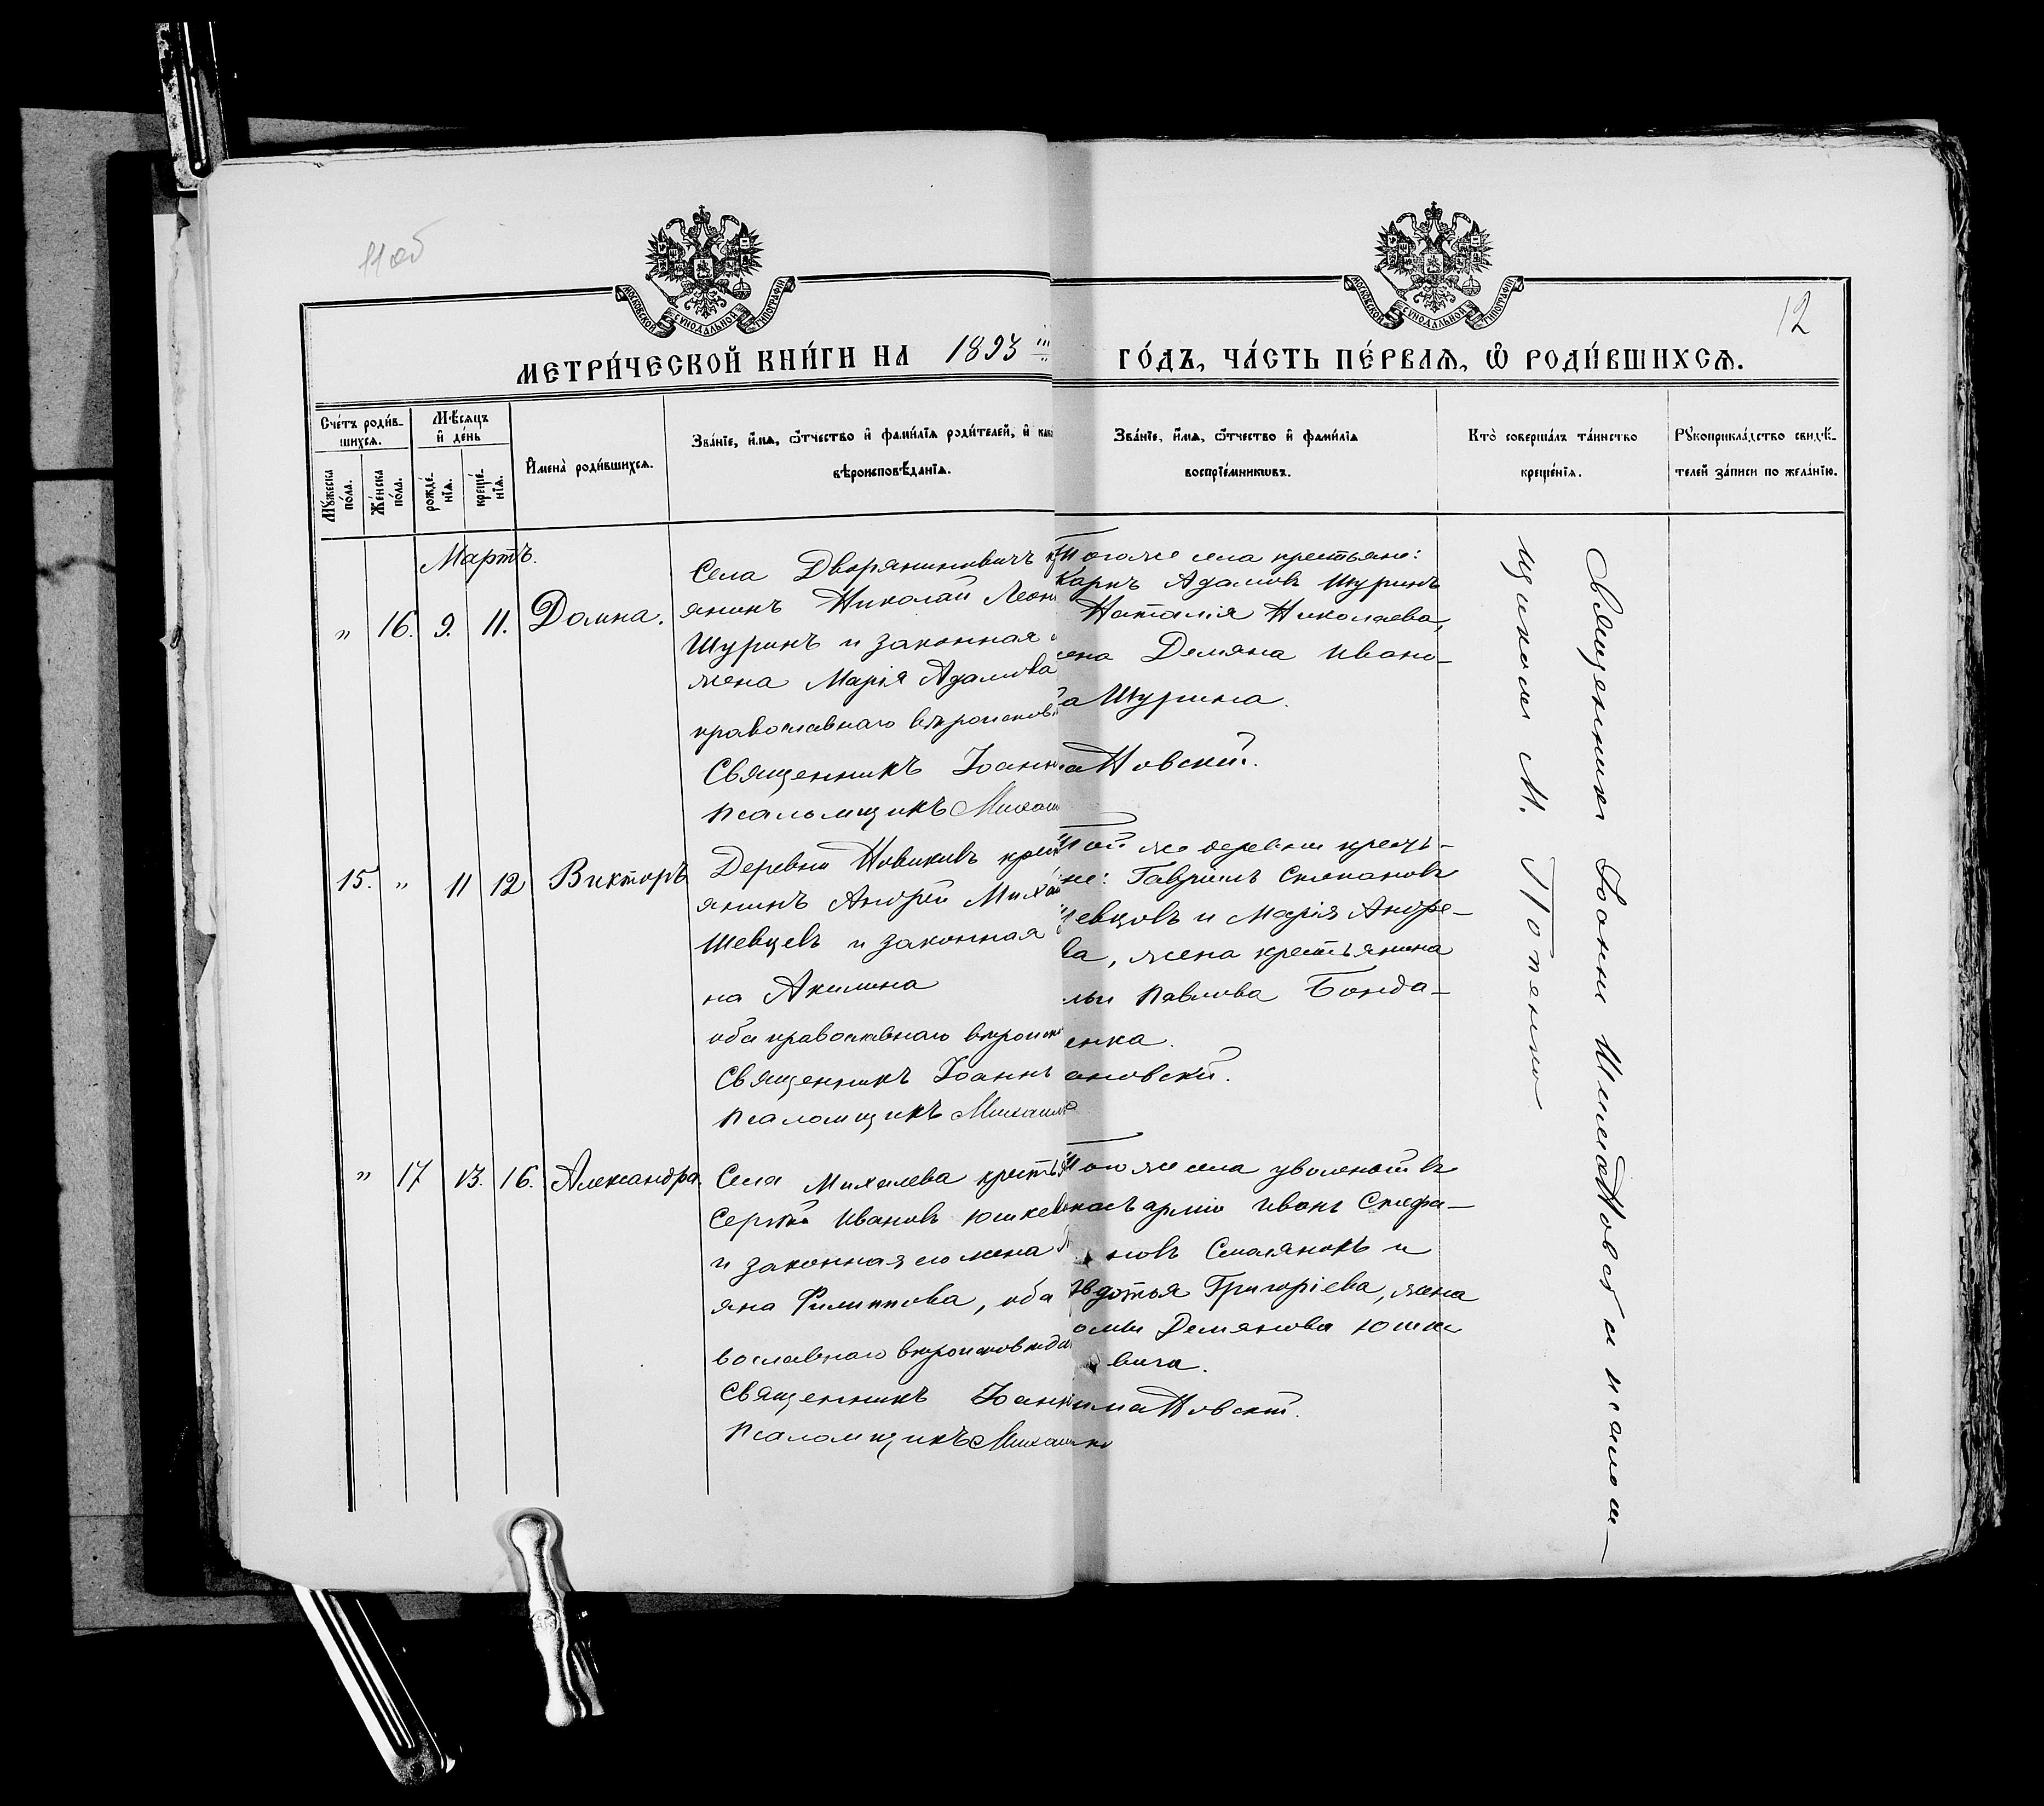 11 об
12
МОСКОВСКОЙ СѴНОДАЛЬНОЙ ТИПОГРАФІИ
МОСКОВСКОЙ СѴНОДАЛЬНОЙ ТИПОГРАФІИ
МЕТРИ́ЧЕСКОЙ КНИ́ГИ НА 1893
ГО́ДЪ, ЧА́СТЬ ПЕ́РВАѦ, Ѡ РОДИ́ВШИХСѦ.
Сче́тъ роди́в-
шихсѧ.
Мꙋ́жеска
по́ла.
Же́нска
по́ла.
Мѣ́сѧцъ
и҆ де́нь
рожде́-
нїѧ.
креще́-
нїѧ.
И҆мена̀ роди́вшихсѧ.
Зва́нїе, и҆́мѧ, ѻ҆́тчество и҆ фами́лїѧ роди́телей, и҆ как
вѣроисповѣ́данїѧ.
Зва́нїе, и҆́мѧ, ѻ҆́тчество и҆ фами́лїѧ
воспрїе́мникѡвъ.
Кто̀ соверша́лъ та́инство
креще́нїѧ.
Рꙋкоприкла́дство свидѣ́-
телей за́писи по жела́нїю.
Мартъ.
" 16. 9. 11. Домна.
Села Дворяниновичъ
янинъ Николай Леон
Шуринъ и законная
жена Марія Адамова
православнаго вѣроиспов
Священникъ Іоанн
Псаломщикъ Михаил
Тогоже села крестьяне:
Карпъ Адамовъ Шуринъ
Наталія Николаева,
ена Демяна Ивано-
а Шурина.
ановскій.
15. " 11 12 Викторъ
Деревни Новиковъ крест
янинъ Андрей Миха
Шевцевъ и законная
на Акилина
оба православнаго вѣроисп
Священникъ Іоаннъ
Псаломщикъ Михаил
Той же деревни кресть-
не: Гавріилъ Степановъ
евцовъ и Марія Андре-
ва, жена крестьянина
льи Павлова Бонда-
енка.
ановскій.
" 17 13. 16. Александра.
Села Михалева кресть
Сергѣй Ивановъ Юшкев
и законная его жена
яна Филиппова, оба
вославнаго вѣроисповѣда
Священникъ Іоанн
Псаломщикъ Михаил
Тогоже села уволеный въ
запасъ арміи Иванъ Стефа-
новъ и
вдотья Григоріева, жена
омы Демянова Юшке
вича.
имановскій.
Священникъ Іоаннъ Шимановскій и псалом-
щикъ М. Попенко